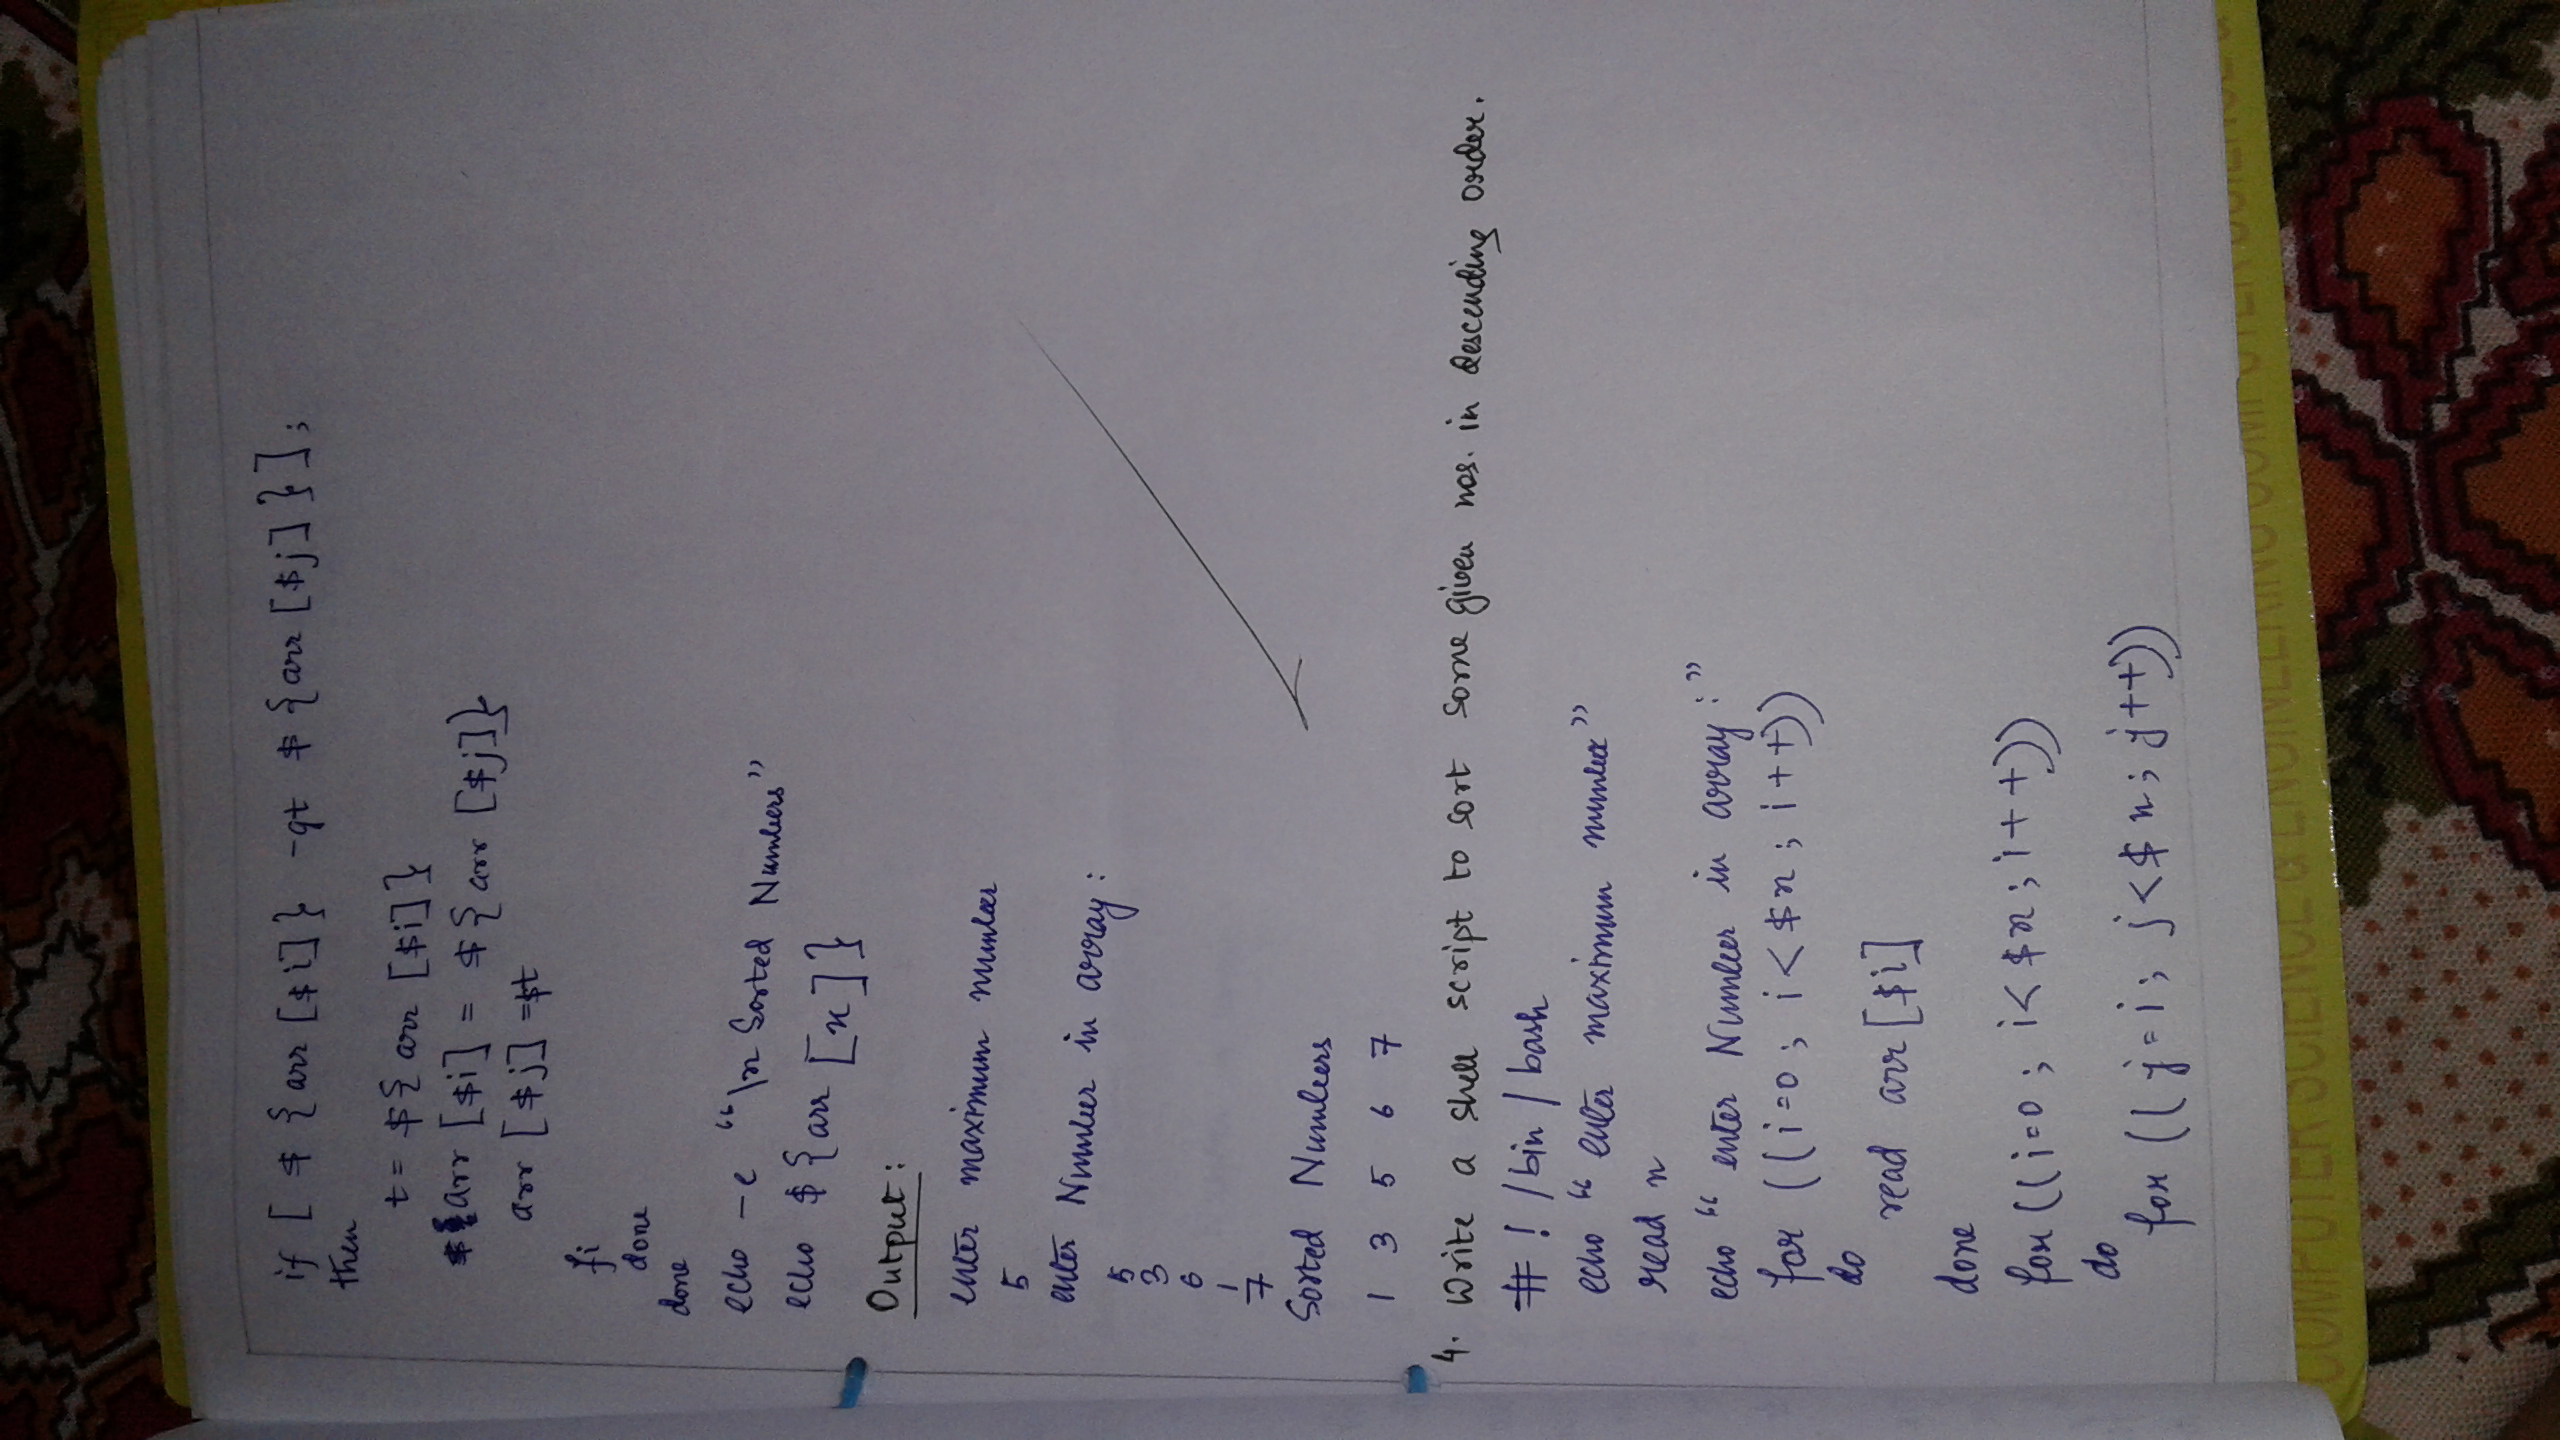 if [ ${arr[$i]} -gt ${arr[$j]}];
then
t= ${arr [$i]}
arr [$i] = ${arr [$j]}
arr [$j] =$t
fi
done
done
echo -e "\n Sorted Numbers"
echo ${arr [x]}
Output:
enter maximum number
5
enter Number in array:
5
3
6
1
7
Sorted Numbers
1 3 5 6 7
4. Write a shell script to sort some given nos. in descending order.
#! /bin/bash
echo "enter maximum number"
read n
echo "enter Number in array:"
for ((i=0; i<$n; i++))
do
read arr[$i]
done
for((i=0; i<$n; i++))
do
for ((j=i; j<$n; j++))
COMPUTER SCIENCE & ENGINEERING COMPUTER SCIENCE &